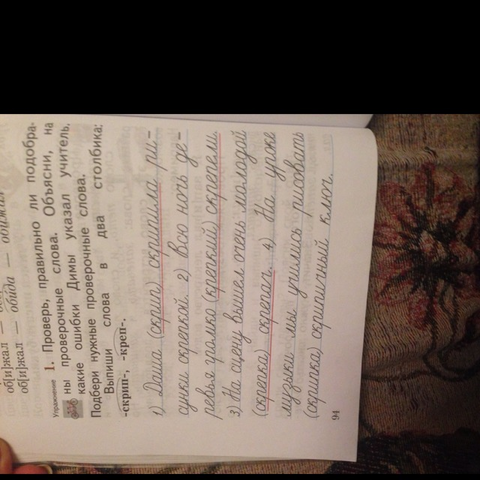 об[и]жал —
об[и]жал — обида — обижал
Упражнение 1. Проверь, правильно ли подобра-
ны проверочные слова. Объясни, на
какие ошибки Димы указал учитель.
Подбери нужные проверочные слова.
Выпиши слова в два столбика:
-скрип-, -креп-.
1) Даша (скрип) скрипила ри-
сунки скрепкой. 2) Всю ночь де-
ревья громко (крепкий) скрепели.
3) На сцену вышел очень молодой
(скрепка) скрепач. 4) На уроке
музыки мы учились рисовать
(скрипка) скрипичный ключ.
94